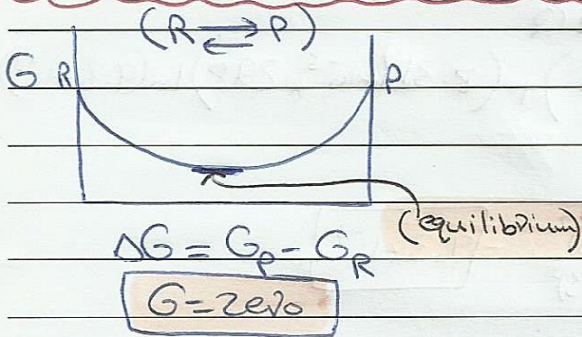 (R ⇌ P)
G R P
(equilibrium)
ΔG = G_P - G_R
G = zero